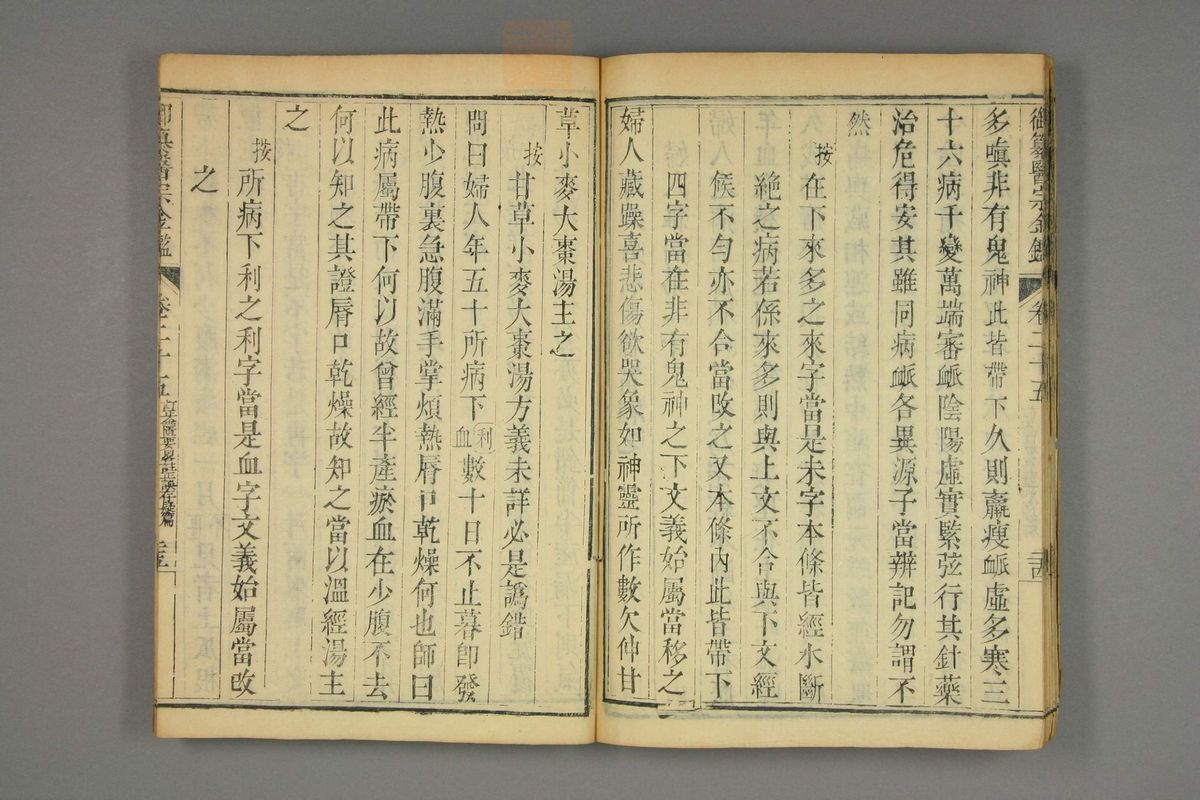 御纂醫宗金鑑 卷二十五 三四
多嗔非有鬼神此皆帶下久則羸瘦脈虛多寒三
十六病千變萬端審脈陰陽虛實緊弦行其針藥
治危得安其雖同病脈各異源子當辨記勿謂不
然
按在下來多之來字當是未字本條皆經水斷
絶之病若係來多則與上文不合與下文經
候不勻亦不合當改之又本條內此皆帶下
四字當在非有鬼神之下文義始屬當移之
婦人藏躁喜悲傷欲哭象如神靈所作數欠伸甘
草小麥大棗湯主之
按甘草小麥大棗湯方義未詳必是譌錯
問曰婦人年五十所病下利血數十日不止暮即發
熱少腹裏急腹滿手掌煩熱脣口乾燥何也師曰
此病屬帶下何以故曾經半產瘀血在少腹不去
何以知之其證脣口乾燥故知之當以溫經湯主
之
按所病下利之利字當是血字文義始屬當改
之
御纂醫宗金鑑 卷二十五 三五